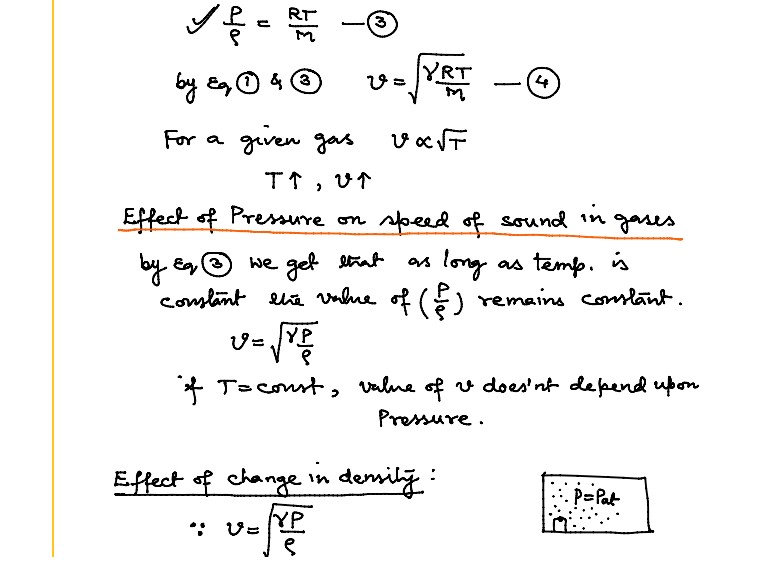 ✓ P/ρ = RT/M —③
by Eq ① & ③ v = √(γRT/M) —④
For a given gas v ∝ √T
T↑ , v↑
Effect of Pressure on speed of sound in gases
by Eq ③ We get that as long as temp. is
constant the value of (P/ρ) remains constant.
v = √(γP/ρ)
if T = const, value of v does'nt depend upon
Pressure.
Effect of change in density :
P = Pat
∵ v = √(γP/ρ)